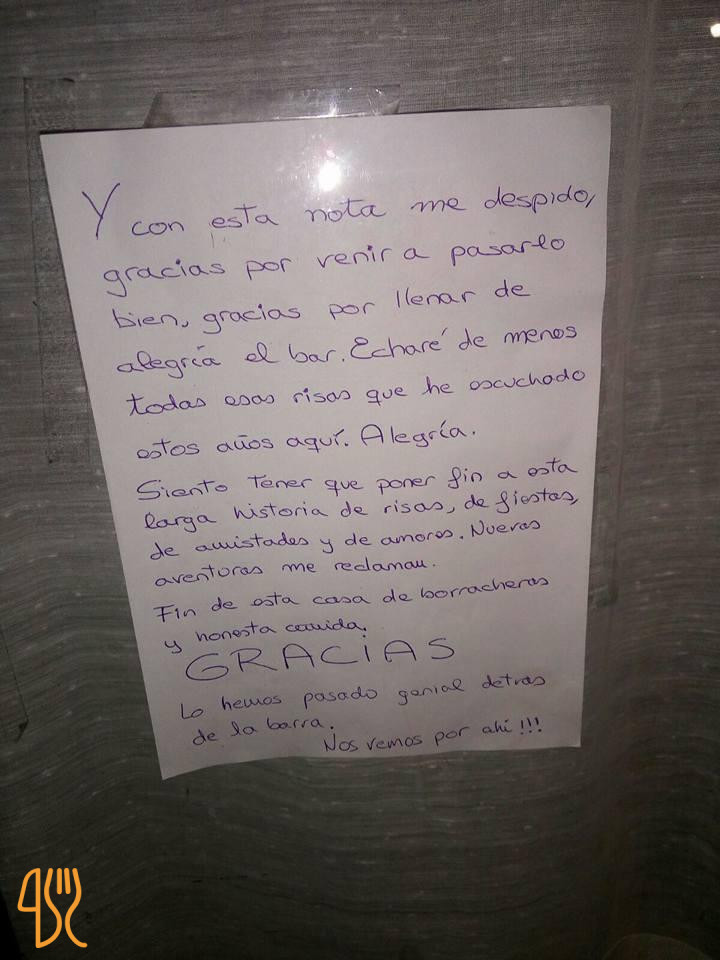 Y con esta nota me despido,
gracias por venir a pasarlo
bien, gracias por llenar de
alegría el bar. Echaré de menos
todas esas risas que he escuchado
estos años aquí. Alegría.
Siento tener que poner fin a esta
larga historia de risas, de fiestas,
de amistades y de amores. Nuevas
aventuras me reclaman.
Fin de esta casa de borracheras
y honesta comida.
GRACIAS
Lo hemos pasado genial detras
de la barra.
Nos vemos por ahí!!!